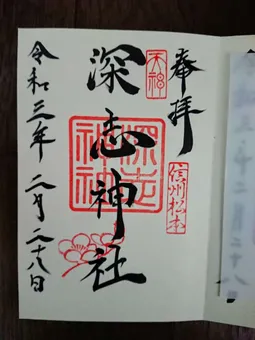 奉拝
天神
信州松本
深志神社
深志神社
令和三年二月二十八日
二月二十八